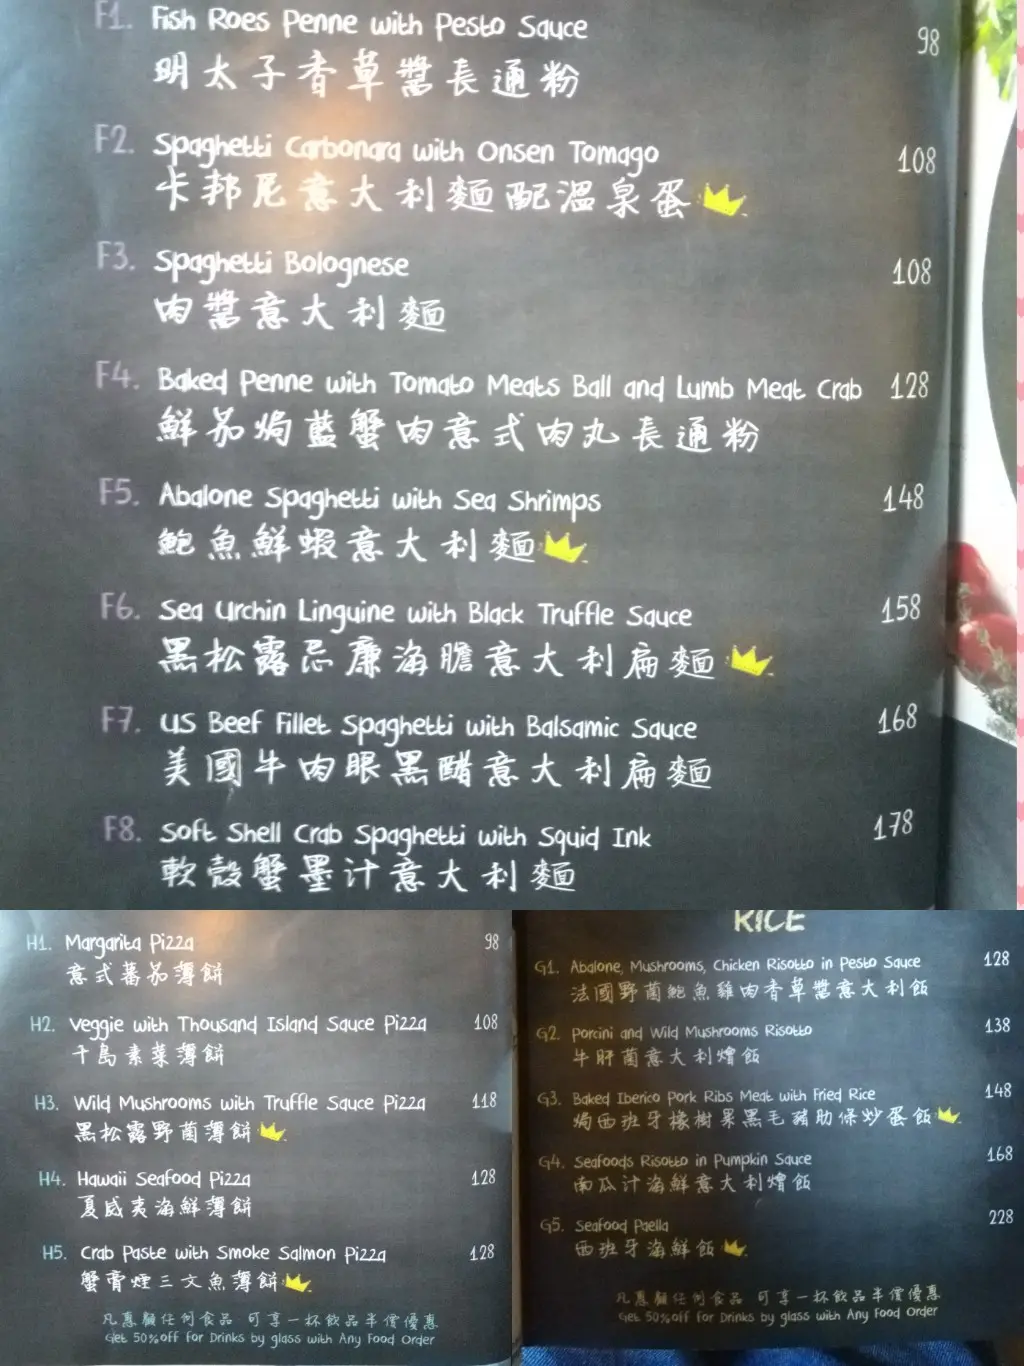 F1. Fish Roes Penne with Pesto Sauce 98
明太子香草醬長通粉
F2. Spaghetti Carbonara with Onsen Tomago 108
卡邦尼意大利麵配溫泉蛋
F3. Spaghetti Bolognese 108
肉醬意大利麵
F4. Baked Penne with Tomato Meats Ball and Lumb Meat Crab 128
鮮茄焗藍蟹肉意式肉丸長通粉
F5. Abalone Spaghetti with Sea Shrimps 148
鮑魚鮮蝦意大利麵
F6. Sea Urchin Linguine with Black Truffle Sauce 158
黑松露忌廉海膽意大利扁麵
F7. US Beef Fillet Spaghetti with Balsamic Sauce 168
美國牛肉眼黑醋意大利扁麵
F8. Soft Shell Crab Spaghetti with Squid Ink 178
軟殼蟹墨汁意大利麵
H1. Margarita Pizza 98
意式蕃茄薄餅
H2. Veggie with Thousand Island Sauce Pizza 108
千島素菜薄餅
H3. Wild Mushrooms with Truffle Sauce Pizza 118
黑松露野菌薄餅
H4. Hawaii Seafood Pizza 128
夏威夷海鮮薄餅
H5. Crab Paste with Smoke Salmon Pizza 128
蟹膏煙三文魚薄餅
凡惠顧任何食品 可享一杯飲品半價優惠
Get 50%off for Drinks by glass with Any Food Order
RICE
G1. Abalone, Mushrooms, Chicken Risotto in Pesto Sauce 128
法國野菌鮑魚雞肉香草醬意大利飯
G2. Porcini and Wild Mushrooms Risotto 138
牛肝菌意大利燴飯
G3. Baked Iberico Pork Ribs Meat with Fried Rice 148
焗西班牙橡樹果黑毛豬肋條炒蛋飯
G4. Seafoods Risotto in Pumpkin Sauce 168
南瓜汁海鮮意大利燴飯
G5. Seafood Paella 228
西班牙海鮮飯
凡惠顧任何食品 可享一杯飲品半價優惠
Get 50%off for Drinks by glass with Any Food Order